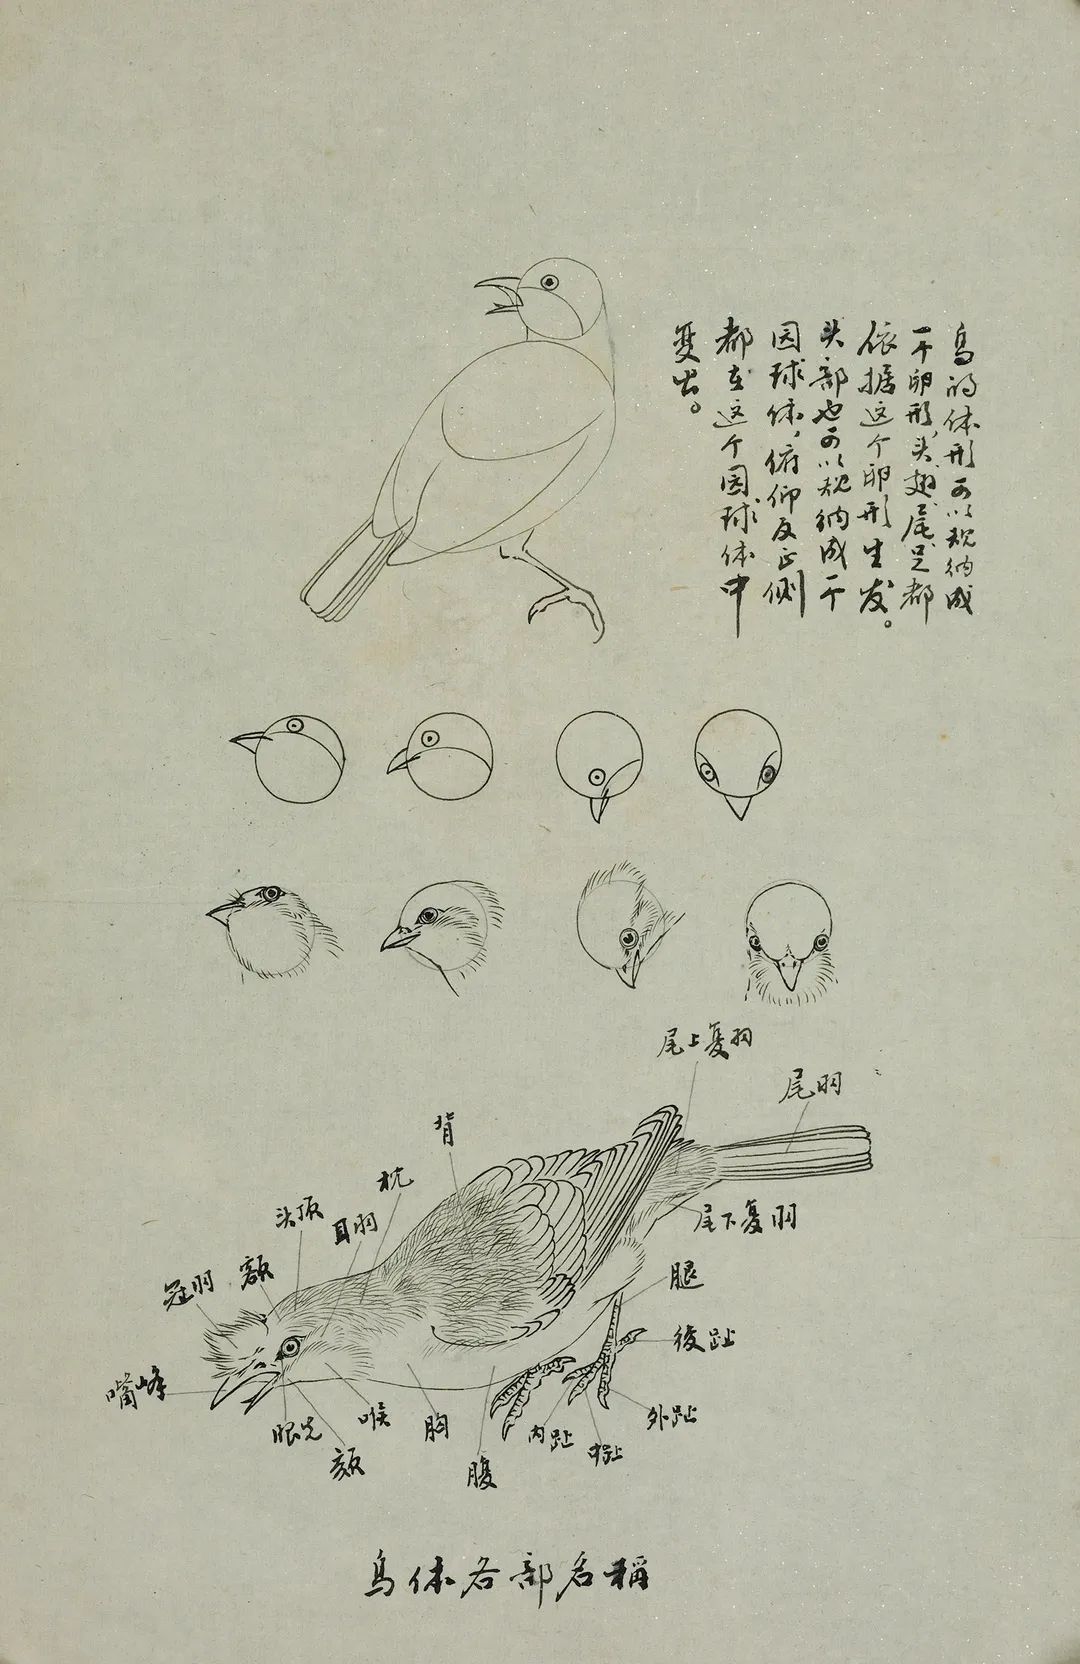 鸟的体形可以规纳成
一个卵形，头、翅、尾、足都
依据这个卵形生发。
头部也可以规纳成一个
园球体，俯仰反正侧
都在这个园球体中
变出。
尾上复羽
尾羽
背
枕
头顶
耳羽
尾下复羽
冠羽
额
腿
後趾
嘴峰
眼先
颏
喉
胸
腹
内趾
中趾
外趾
鸟体各部名稱